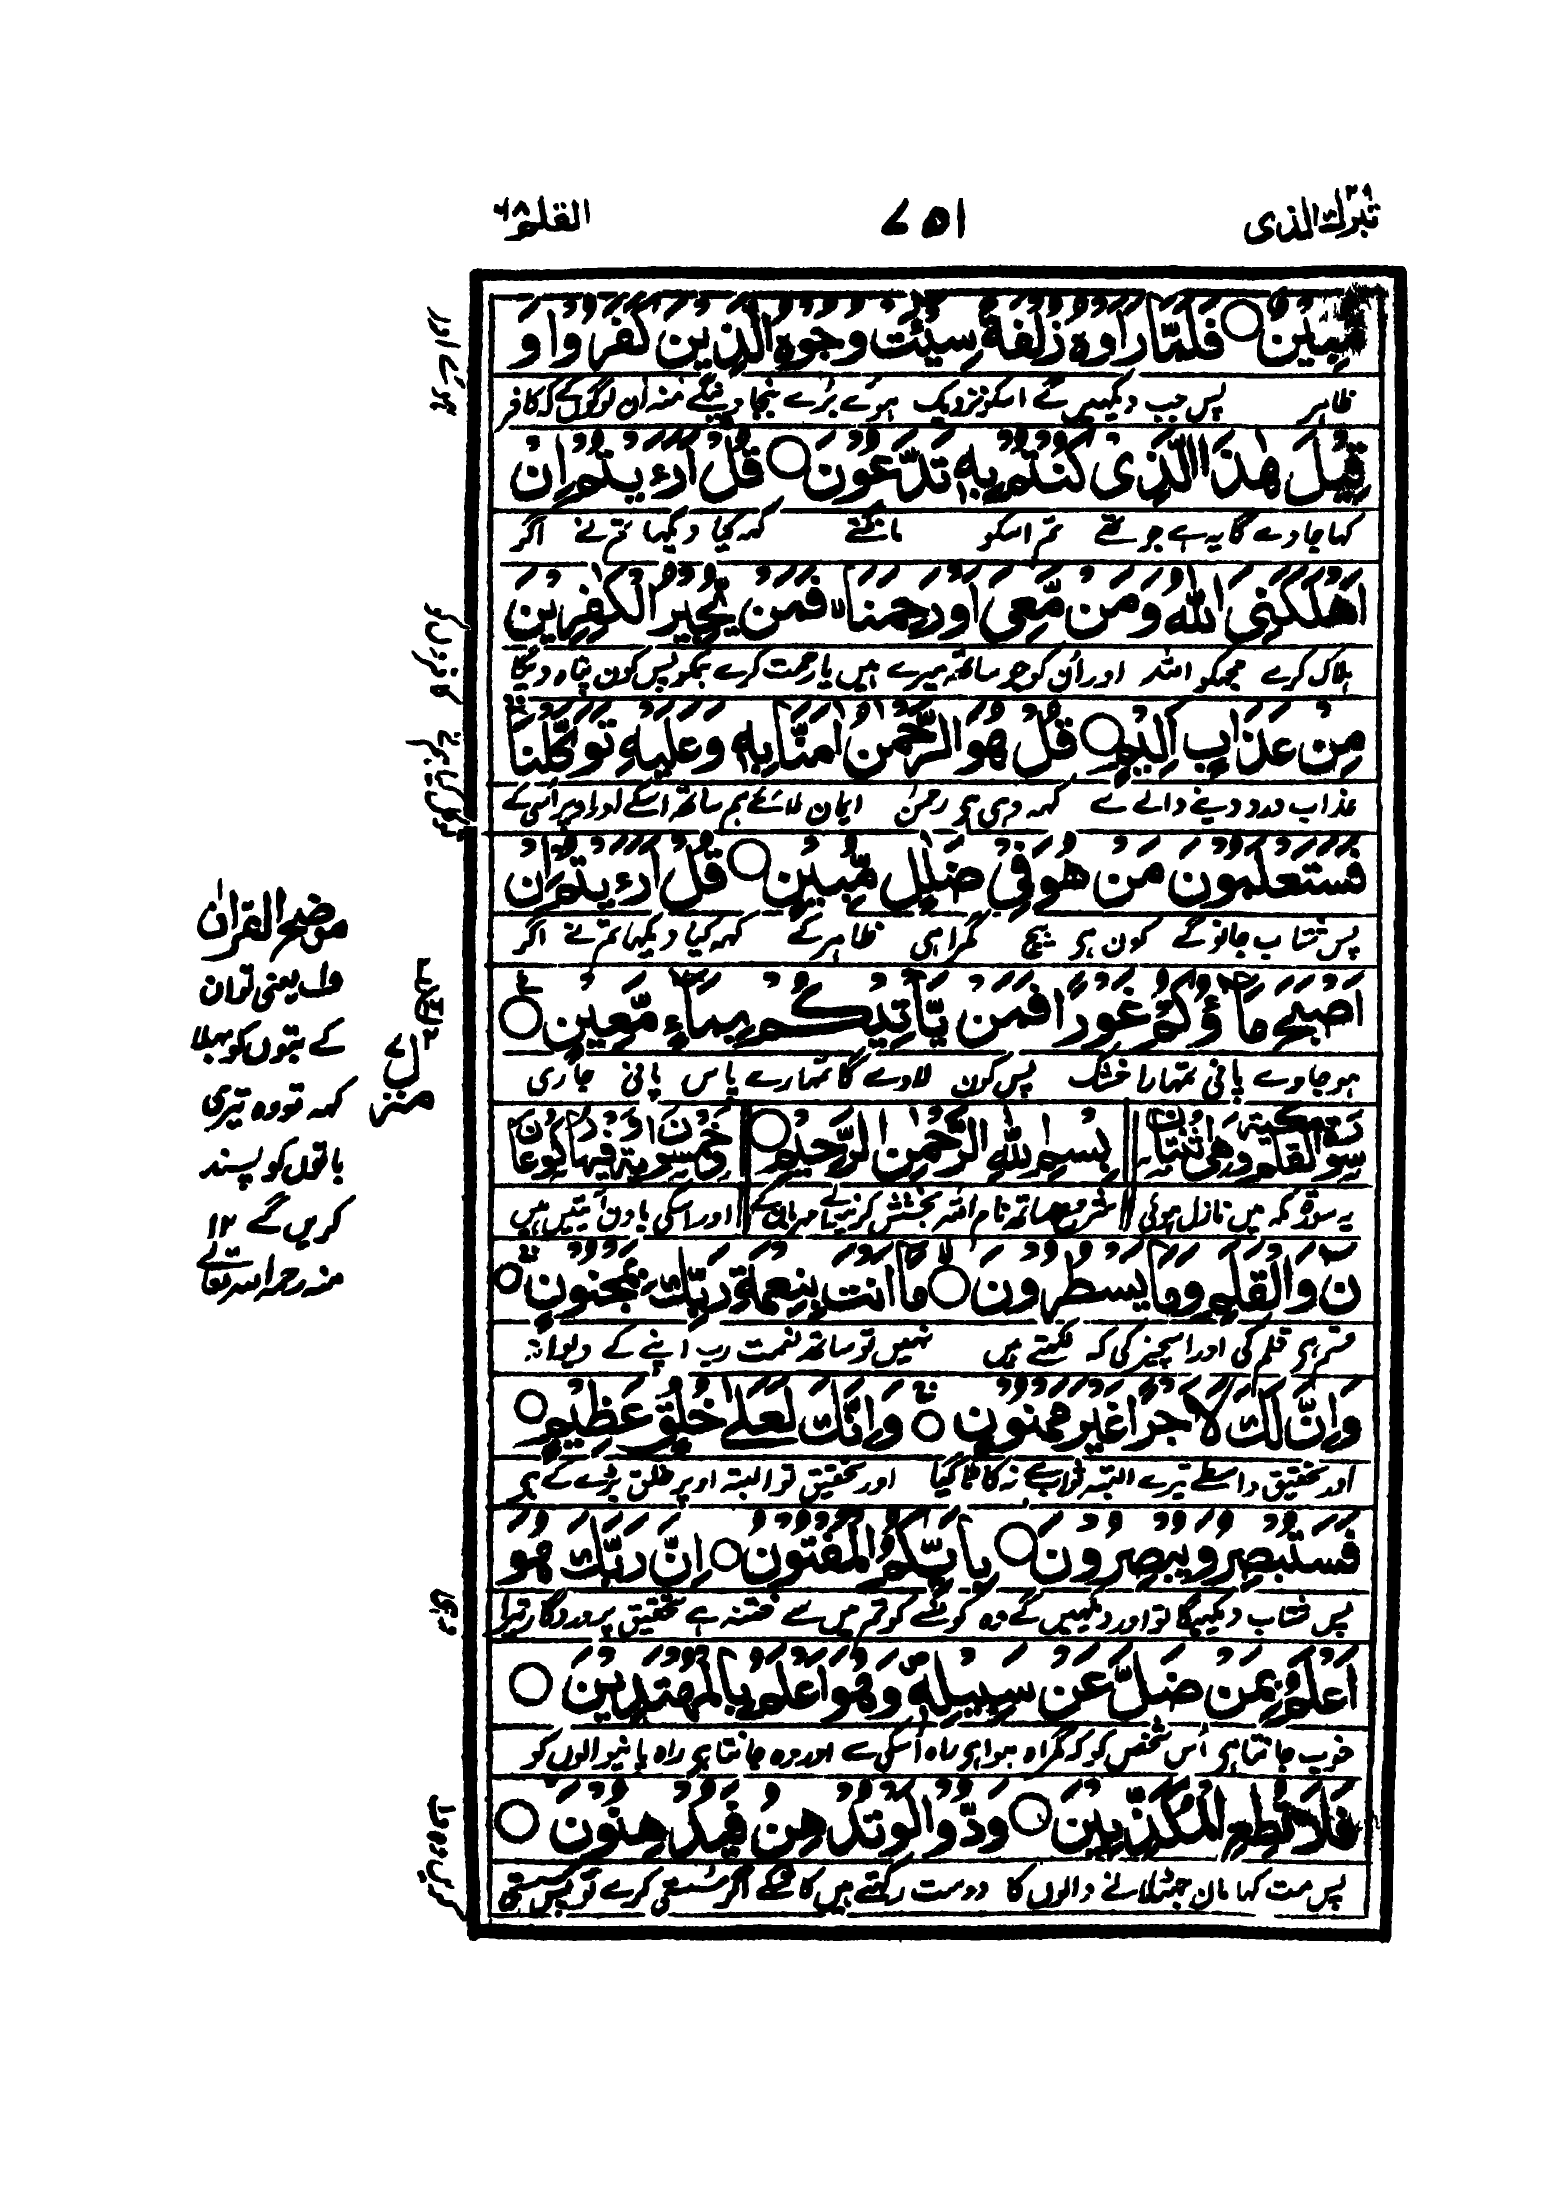 تبرك الذی ٢٩
٧٥١
القلم ٦٨
مُّبِينٌ ○ فَلَمَّا رَاَوْهُ زُلْفَةً سِيْٓئَتْ وُجُوْهُ الَّذِيْنَ كَفَرُوْا وَ
ظاہر پس جب دیکھیں گے اسکو نزدیک ہوئے بُرے بنجاوینگے منہ اُن لوگوں کے کہ کافر
قِيْلَ هٰذَا الَّذِىْ كُنْتُمْ بِهٖ تَدَّعُوْنَ ○ قُلْ اَرَءَيْتُمْ اِنْ
کہا جاوے گا یہ ہے جو تھے تم اسکو مانگتے کہہ کیا دیکھا تم نے اگر
اَهْلَكَنِىَ اللّٰهُ وَمَنْ مَّعِىَ اَوْ رَحِمَنَا ۙ فَمَنْ يُّجِيْرُ الْكٰفِرِيْنَ
ہلاک کرے مجھکو اللہ اور اُن کو جو ساتھ میرے ہیں یا رحمت کرے ہمکو پس کون پناہ دیگا
مِنْ عَذَابٍ اَلِيْمٍ ○ قُلْ هُوَ الرَّحْمٰنُ اٰمَنَّا بِهٖ وَعَلَيْهِ تَوَكَّلْنَا ۚ
عذاب درد دینے والے سے کہہ وہی ہی رحمن ایمان لائے ہم ساتھ اسکے اور اوپر اُسی کے
فَسَتَعْلَمُوْنَ مَنْ هُوَ فِىْ ضَلٰلٍ مُّبِيْنٍ ○ قُلْ اَرَءَيْتُمْ اِنْ
پس شتاب جانو گے کون ہی بیچ گمراہی ظاہر کے کہہ کیا دیکھا تم نے اگر
اَصْبَحَ مَآؤُكُمْ غَوْرًا فَمَنْ يَّاْتِيْكُمْ بِمَآءٍ مَّعِيْنٍ ○
ہو جاوے پانی تمہارا خشک پس کون لاوے گا تمہارے پاس پانی جاری
سورة القلم مكية وهى ثنتا بِسْمِ اللّٰهِ الرَّحْمٰنِ الرَّحِيْمِ ○ وخمسون اية وفيها ركوعان
یہ سورة مکہ میں نازل ہوئی شروع ساتھ نام اللہ بخشش کرنیوالے مہربان کے اور اسکی باون آیتیں ہیں
نٓ وَالْقَلَمِ وَمَا يَسْطُرُوْنَ ○ مَآ اَنْتَ بِنِعْمَةِ رَبِّكَ بِمَجْنُوْنٍ ○
قسم ہی قلم کی اور اسچیز کی کہ لکھتے ہیں نہیں تو ساتھ نعمت رب اپنے کے دیوانہ
وَاِنَّ لَكَ لَاَجْرًا غَيْرَ مَمْنُوْنٍ ○ وَاِنَّكَ لَعَلٰى خُلُقٍ عَظِيْمٍ ○
اور تحقیق واسطے تیرے البتہ ثواب ہے نہ کاٹا گیا اور تحقیق تو البتہ اوپر خلق بڑے کے ہی
فَسَتُبْصِرُ وَيُبْصِرُوْنَ ○ بِاَيِّكُمُ الْمَفْتُوْنُ ○ اِنَّ رَبَّكَ هُوَ
پس شتاب دیکھیگا تو اور دیکھیں گے وہ کونسے کو تم میں سے فتنہ ہے تحقیق پروردگار تیرا
اَعْلَمُ بِمَنْ ضَلَّ عَنْ سَبِيْلِهٖ ۪ وَهُوَ اَعْلَمُ بِالْمُهْتَدِيْنَ ○
خوب جانتا ہی اُس شخص کو کہ گمراہ ہوا ہی راہ اُسکی سے اور وہ جانتا ہی راہ پانیوالوں کو
فَلَا تُطِعِ الْمُكَذِّبِيْنَ ○ وَدُّوْا لَوْ تُدْهِنُ فَيُدْهِنُوْنَ ○
پس مت کہا مان جھٹلانے والوں کا دوست رکھتے ہیں کاشکے اگر سستی کرے تو پس سستی
موضح القرآن
ول یعنی تو ان
کے بتوں کو بھلا
کہہ تو وہ تیری
باتوں کو پسند
کریں گے ١٢
منہ رحمہ اللہ تعالے
منزل